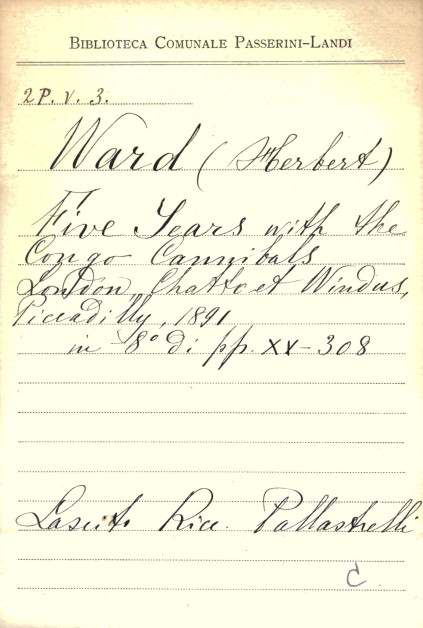 BIBLIOTECA COMUNALE PASSERINI-LANDI
2P. V. 3.
Ward (Herbert)
Five Years with the
Congo Cannibals
London, Chatto et Windus,
Piccadilly, 1891
in 8° di pp. XX-308
Lascito Ric. Pallastrelli
C